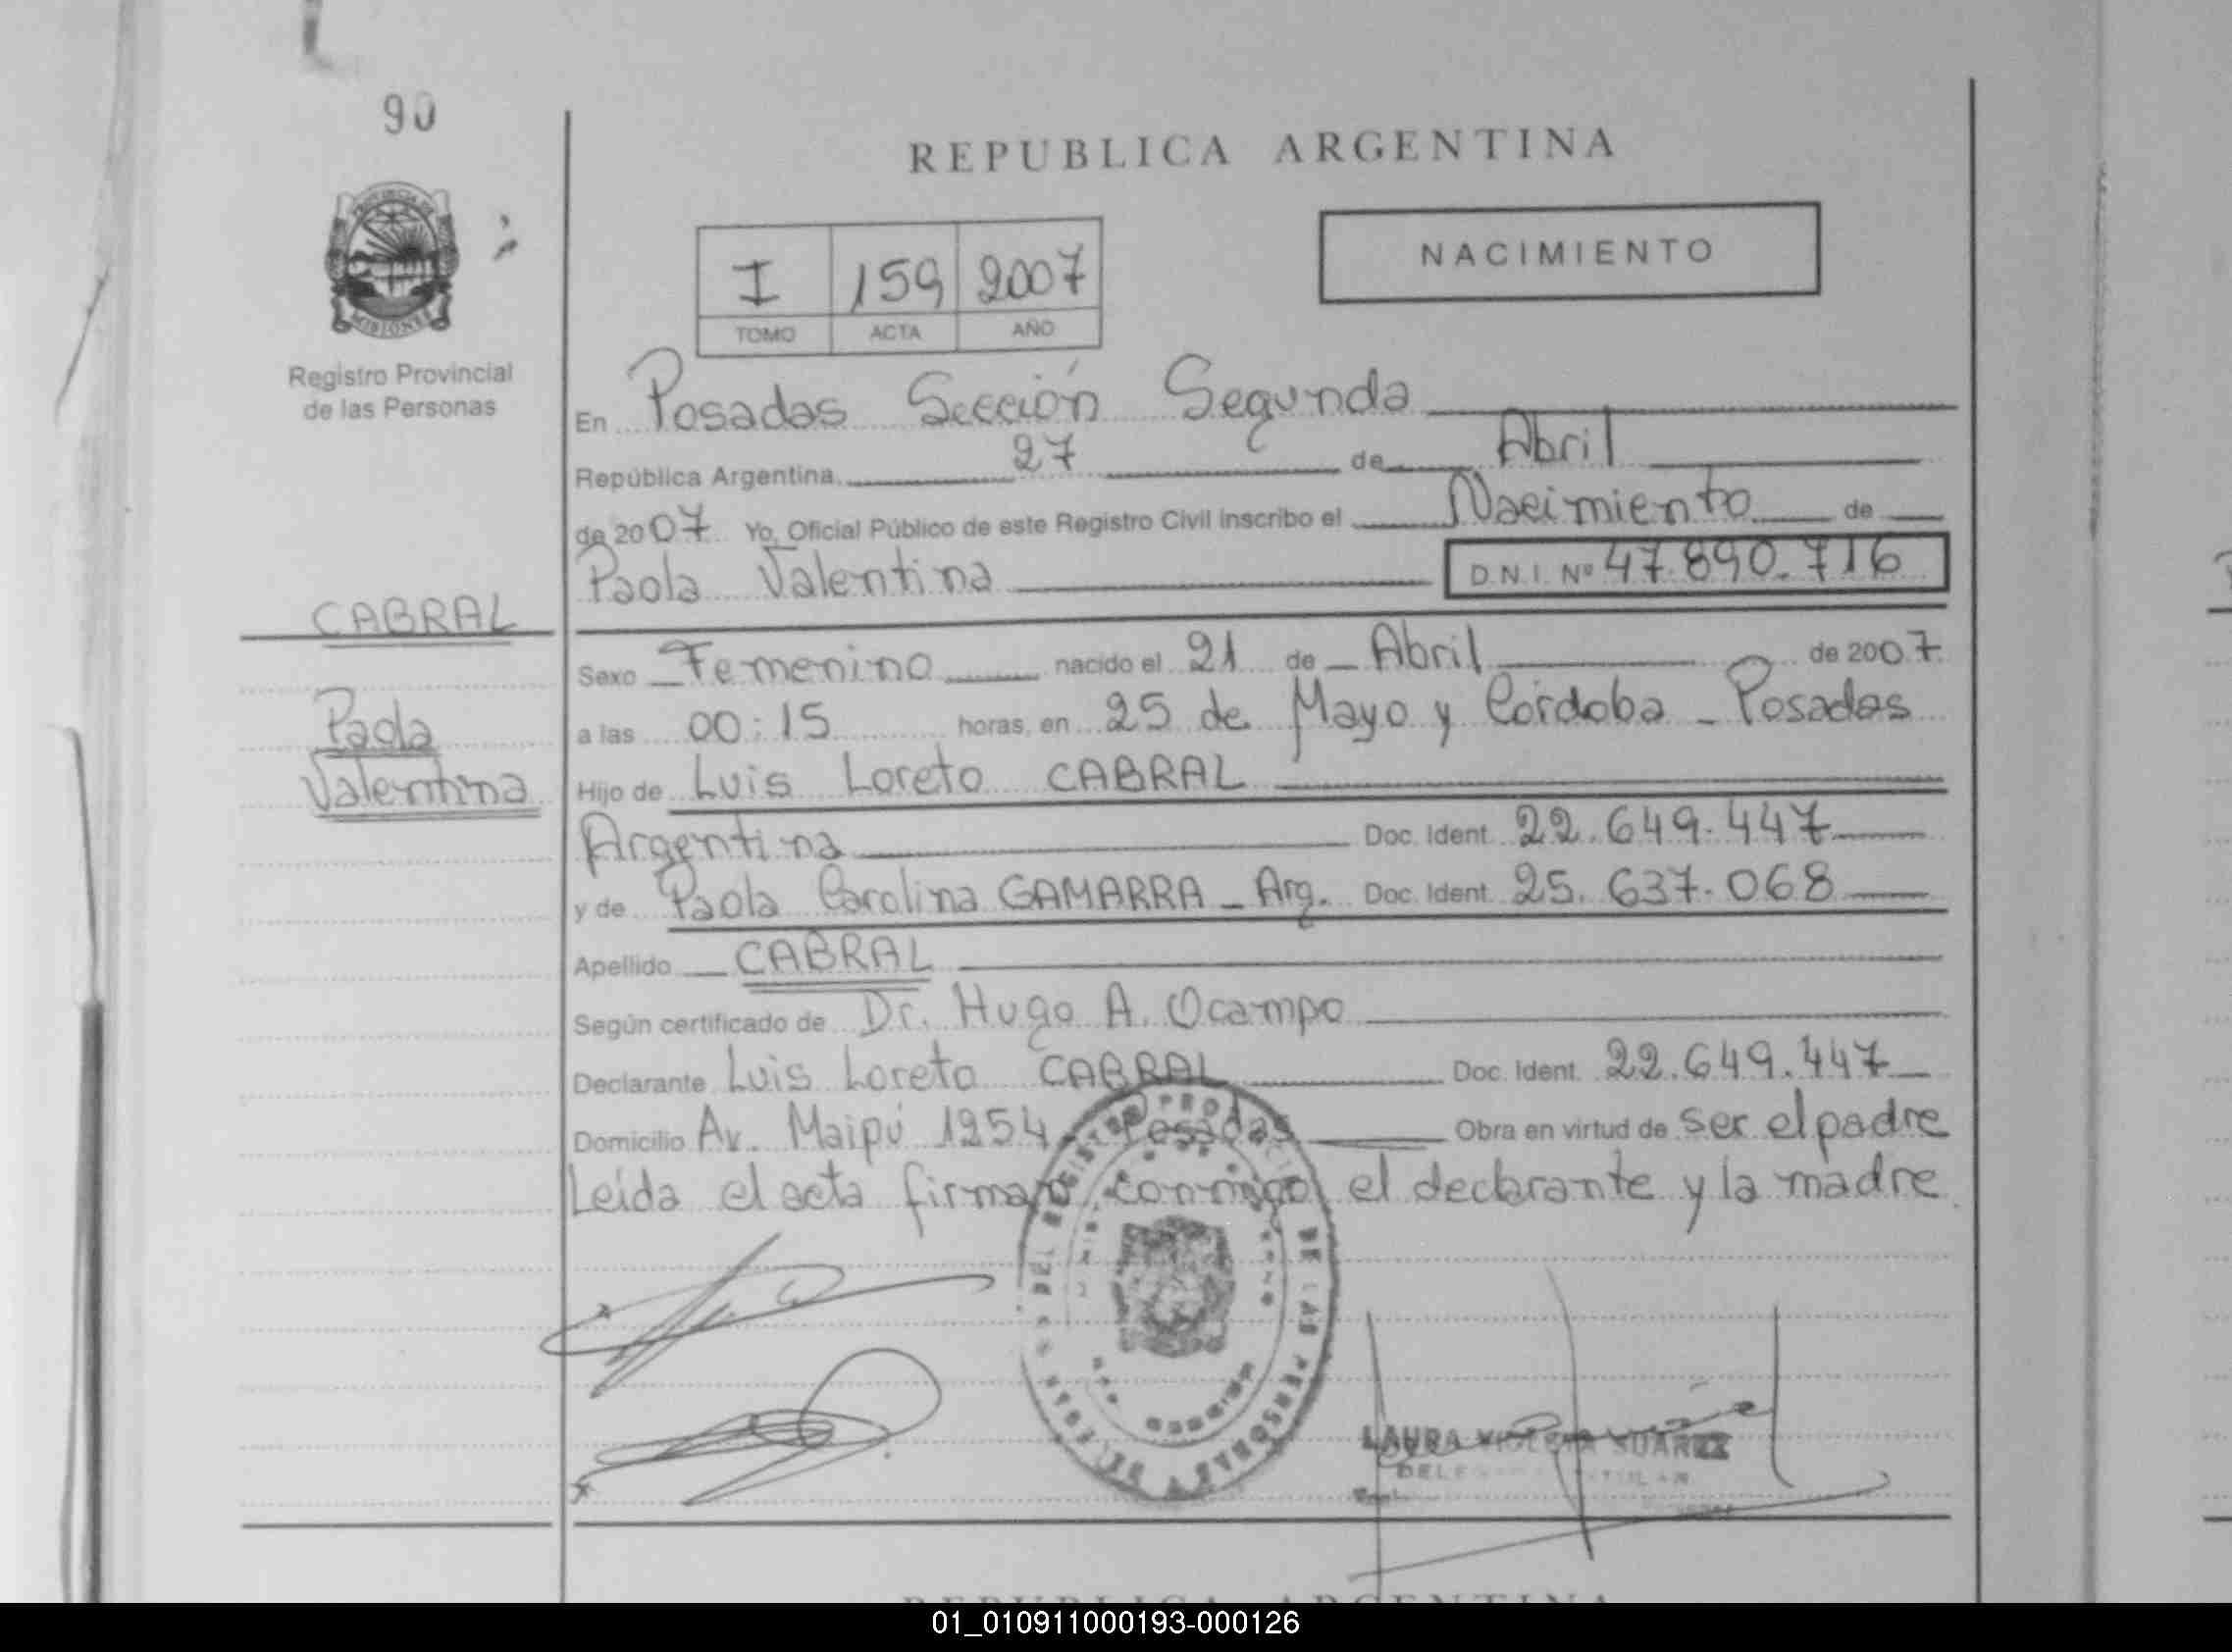 90
REPUBLICA ARGENTINA
PROVINCIA DE
MISIONES
NACIMIENTO
I 159 2007
TOMO ACTA AÑO
Registro Provincial
de las Personas
En Posadas Sección Segunda
República Argentina 27 de Abril
de 2007 Yo, Oficial Público de este Registro Civil inscribo el Nacimiento de
Paola Valentina D.N.I. Nº 47.890.716
CABRAL
Paola
Valentina
Sexo Femenino nacido el 21 de Abril de 2007
a las 00:15 horas, en 25 de Mayo y Córdoba - Posadas
Hijo de Luis Loreto CABRAL
Argentina Doc. Ident. 22.649.447
y de Paola Carolina GAMARRA - Arg. Doc. Ident. 25.637.068
Apellido CABRAL
Según certificado de Dr. Hugo A. Ocampo
Declarante Luis Loreto CABRAL Doc. Ident. 22.649.447
Domicilio Av. Maipú 1254 Posadas Obra en virtud de ser el padre
Leída el acta firman conmigo el declarante y la madre
DE LAS PERSONAS
LAURA VIOLETA SUAREZ
REPUBLICA ARGENTINA
01_010911000193-000126